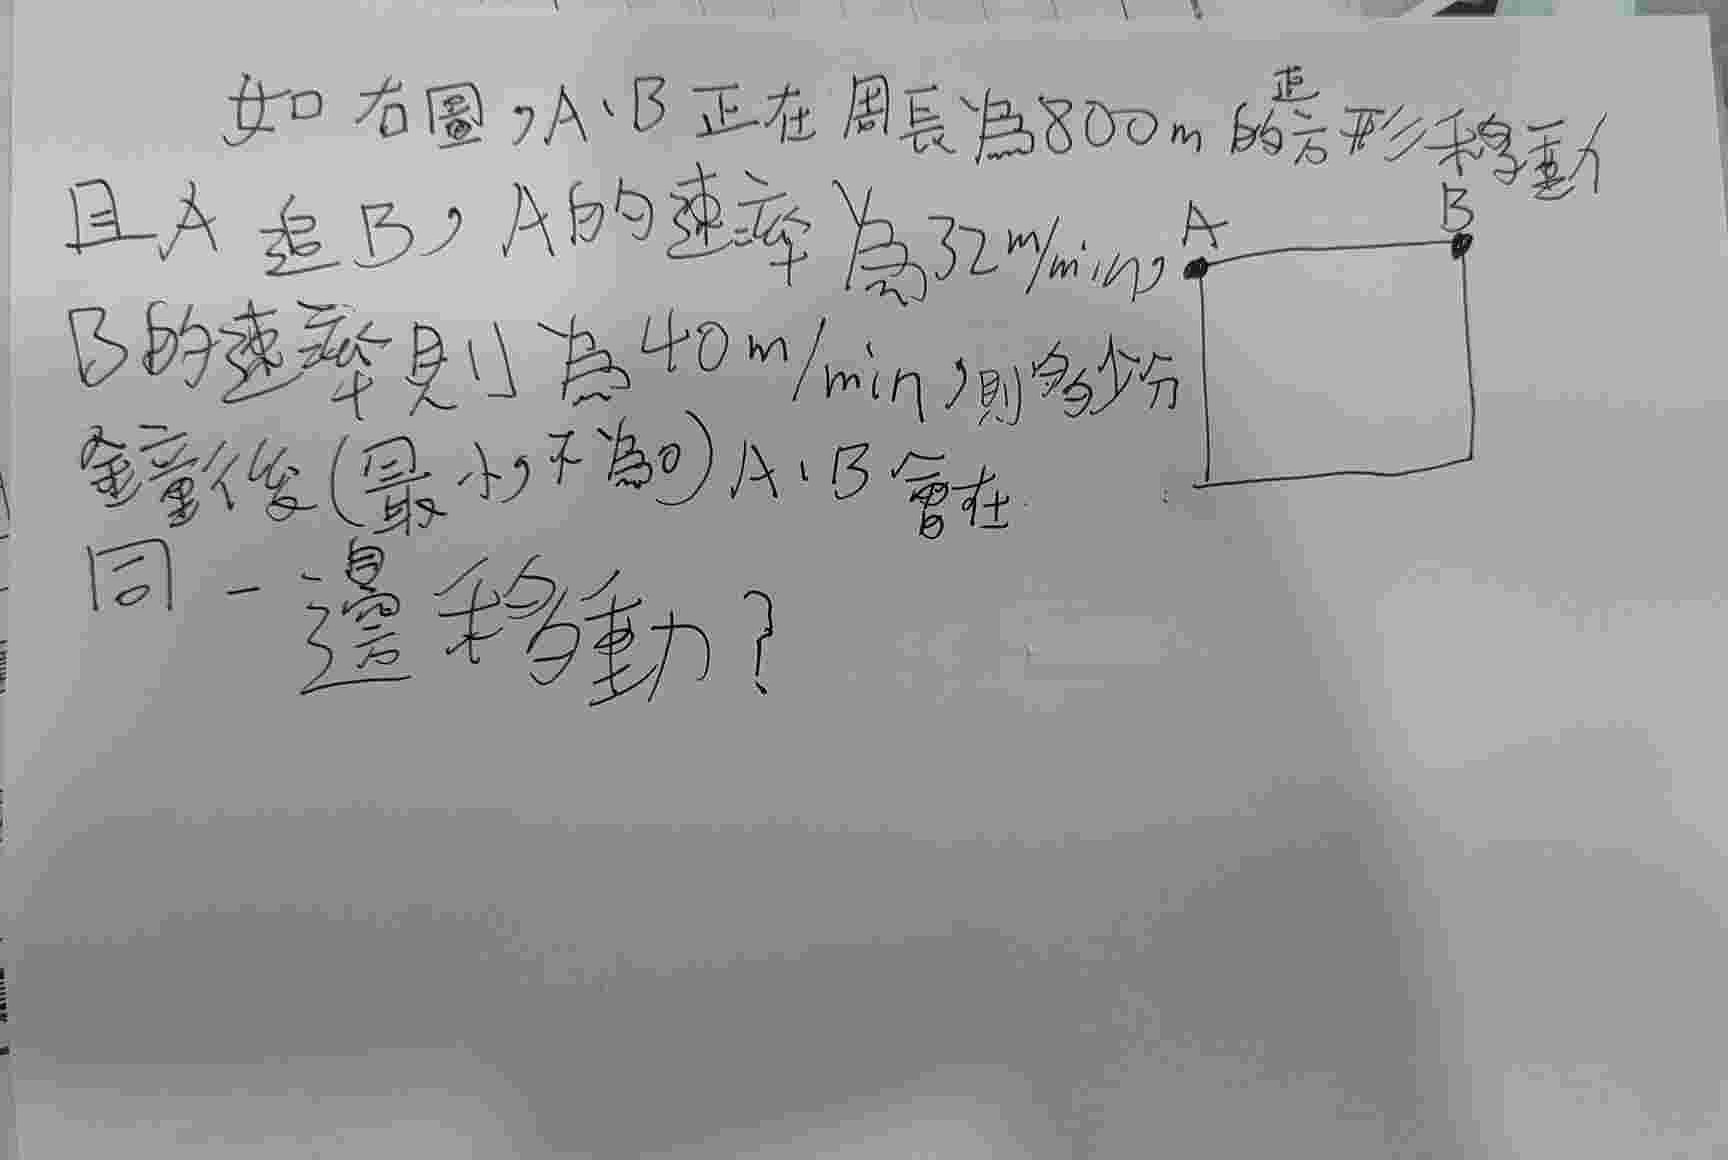 如右圖,A、B正在周長為800m的正方形移動
且A追B,A的速率為32m/min,
B的速率則為40m/min,則多少分
鐘後(最小,不為0)A、B會在
同一邊移動?
A
B